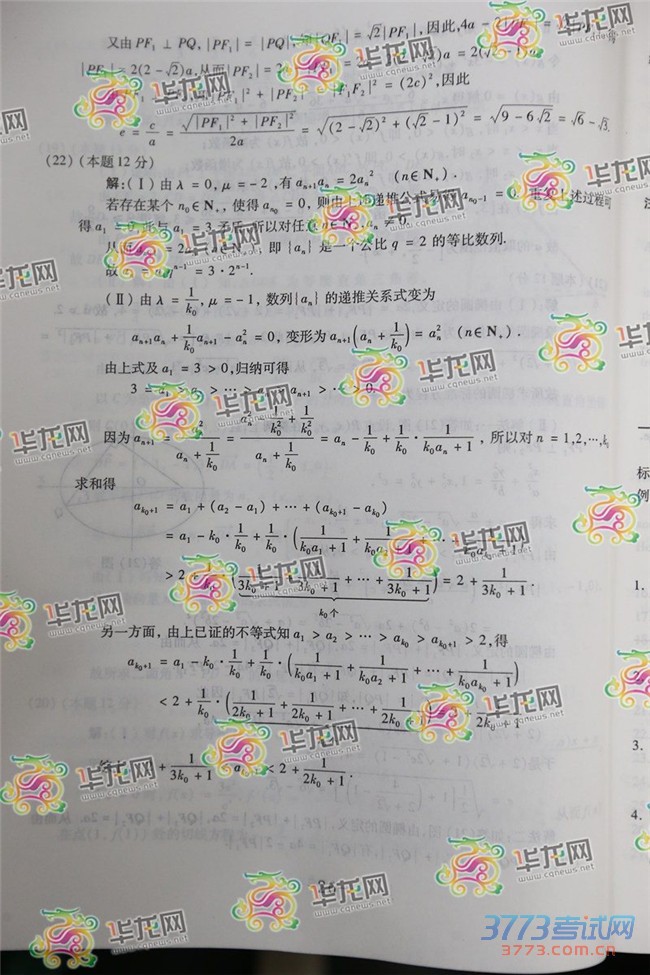 又由 PF₁ ⊥ PQ, |PF₁| = |PQ|, 知 |QF₁| = √2|PF₁|, 因此, 4a - 2|PF₁| =
|PF₁| = 2(2 - √2)a, 从而 |PF₂| = 2a - )a = 2(√2 - 1)a.
|² + |PF₂| F₁F₂|² = (2c)², 因此
e = c/a = √(|PF₁|² + |PF₂|²)/2a = √((2 - √2)² + (√2 - 1)²) = √(9 - 6√2) = √6 - √3.
(22) (本题12分)
解:(Ⅰ) 由 λ = 0, μ = -2, 有 aₙ₊₁aₙ = 2aₙ² (n∈N₊).
若存在某个 n₀∈N₊, 使得 aₙ₀ = 0, 则由上述递推公式 aₙ₀₋₁ = 0, 重复上述过程可
得 a₁ = 0, 此与 a₁ = 3 矛盾, 所以对任 n∈N₊, aₙ ≠ 0.
= 2aₙ 即 {aₙ} 是一个公比 q = 2 的等比数列.
故 qⁿ⁻¹ = 3·2ⁿ⁻¹.
(Ⅱ) 由 λ = 1/k₀, μ = -1, 数列{aₙ} 的递推关系式变为
aₙ₊₁aₙ + (1/k₀)aₙ₊₁ - aₙ² = 0, 变形为 aₙ₊₁(aₙ + 1/k₀) = aₙ² (n∈N₊).
由上式及 a₁ = 3 > 0, 归纳可得
3 = a₁ > ⋯ > aₙ₊₁ > ⋯ > 0.
因为 aₙ₊₁ = aₙ²/(aₙ + 1/k₀) = (aₙ² - 1/k₀² + 1/k₀²)/(aₙ + 1/k₀) = aₙ - 1/k₀ + 1/k₀ · 1/(k₀aₙ + 1), 所以对 n = 1,2,⋯,k₀
求和得
aₖ₀₊₁ = a₁ + (a₂ - a₁) + ⋯ + (aₖ₀₊₁ - aₖ₀)
= a₁ - k₀·1/k₀ + 1/k₀·(1/(k₀a₁ + 1) + 1/(k₀a₂ + 1) + ⋯ + 1/(k₀aₖ₀ + 1))
> 2 + 1/k₀·(1/(3k₀ + 1) + 1/(3k₀ + 1) + ⋯ + 1/(3k₀ + 1)) = 2 + 1/(3k₀ + 1).
k₀个
另一方面, 由上已证的不等式知 a₁ > a₂ > ⋯ > aₖ₀ > aₖ₀₊₁ > 2, 得
aₖ₀₊₁ = a₁ - k₀·1/k₀ + 1/k₀·(1/(k₀a₁ + 1) + 1/(k₀a₂ + 1) + ⋯ + 1/(k₀aₖ₀ + 1))
< 2 + 1/k₀·(1/(2k₀ + 1) + 1/(2k₀ + 1) + ⋯ + 1/(2k₀ + 1)) = 2 + 1/(2k₀ + 1).
+ 1/(3k₀ + 1) < aₖ₀₊₁ < 2 + 1/(2k₀ + 1).
标
例
1.
3.
4.
华龙网
www.cqnews.net
3773考试网
3773.com.cn